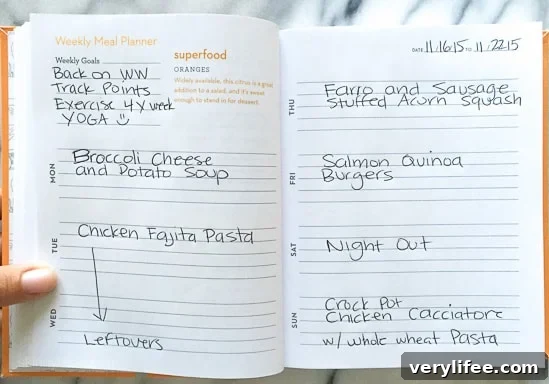 Weekly Meal Planner
Weekly Goals
Back on WW
Track Points
Exercise 4x week
YOGA
superfood
ORANGES
Widely available, this citrus is a great
addition to a salad, and it's sweet
enough to stand in for dessert.
MON
Broccoli Cheese
and Potato Soup
TUE
Chicken Fajita Pasta
WED
Leftovers
DATE 11/16/15 TO 11/22/15
THU
Farro and Sausage
Stuffed Acorn Squash
FRI
Salmon Quinoa
Burgers
SAT
Night Out
SUN
Crock Pot
Chicken Cacciatore
w/ whole wheat Pasta
verylifee.com